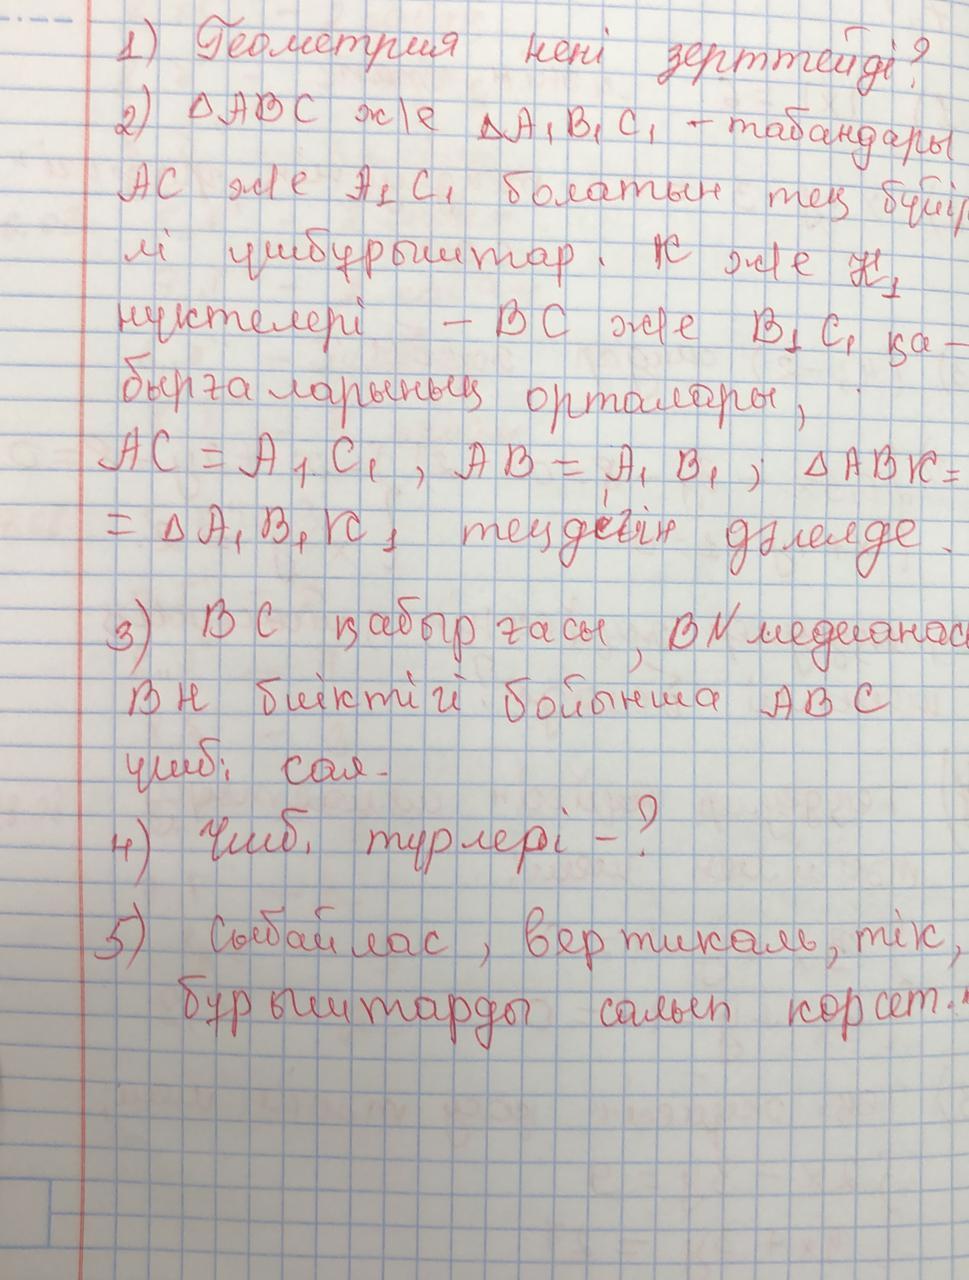 1) Геометрия нені зерттейді?
2) ΔABC ж/е ΔA₁B₁C₁ – табандары
AC ж/е A₁C₁ болатын тең бүйір
лі үшбұрыштар. K ж/е K₁
нүктелері – BC ж/е B₁C₁ қа–
бырғаларының орталары,
AC = A₁C₁, AB = A₁B₁; ΔABK =
= ΔA₁B₁K₁ теңдігін дәлелде.
3) BC қабырғасы, BN медианас
BH биіктігі бойынша ABC
үшб. сал.
4) Үшб. түрлері – ?
5) Сыбайлас, вертикаль, тік,
бұрыштарды салып көрсет.